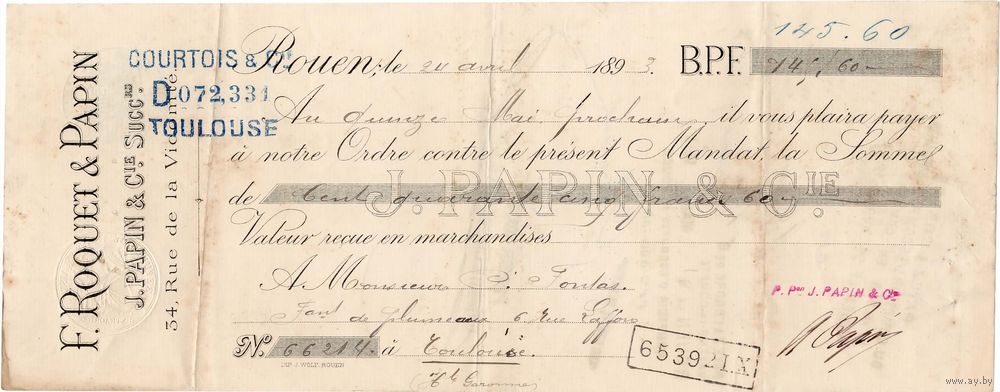 F. ROQUET & PAPIN
J. PAPIN & CIE SUCCRS
34, Rue de la Vicomté
COURTOIS & CIE
D 072,331
TOULOUSE
145.60
Rouen, le 24 avril 1893. B.P.F. 145,60
Au quinze Mai prochain il vous plaira payer
à notre Ordre contre le présent Mandat, la Somme
de Cent quarante cinq francs 60
J. PAPIN & CIE
Valeur reçue en marchandises
A Monsieur P. Fontas
Fant de plumeaux 6 Rue
No. 66214 à Toulouse
Hte Garonne
IMP. J. WOLF. ROUEN
65392 I.X.
P. Pon J. PAPIN & Cie
Papin